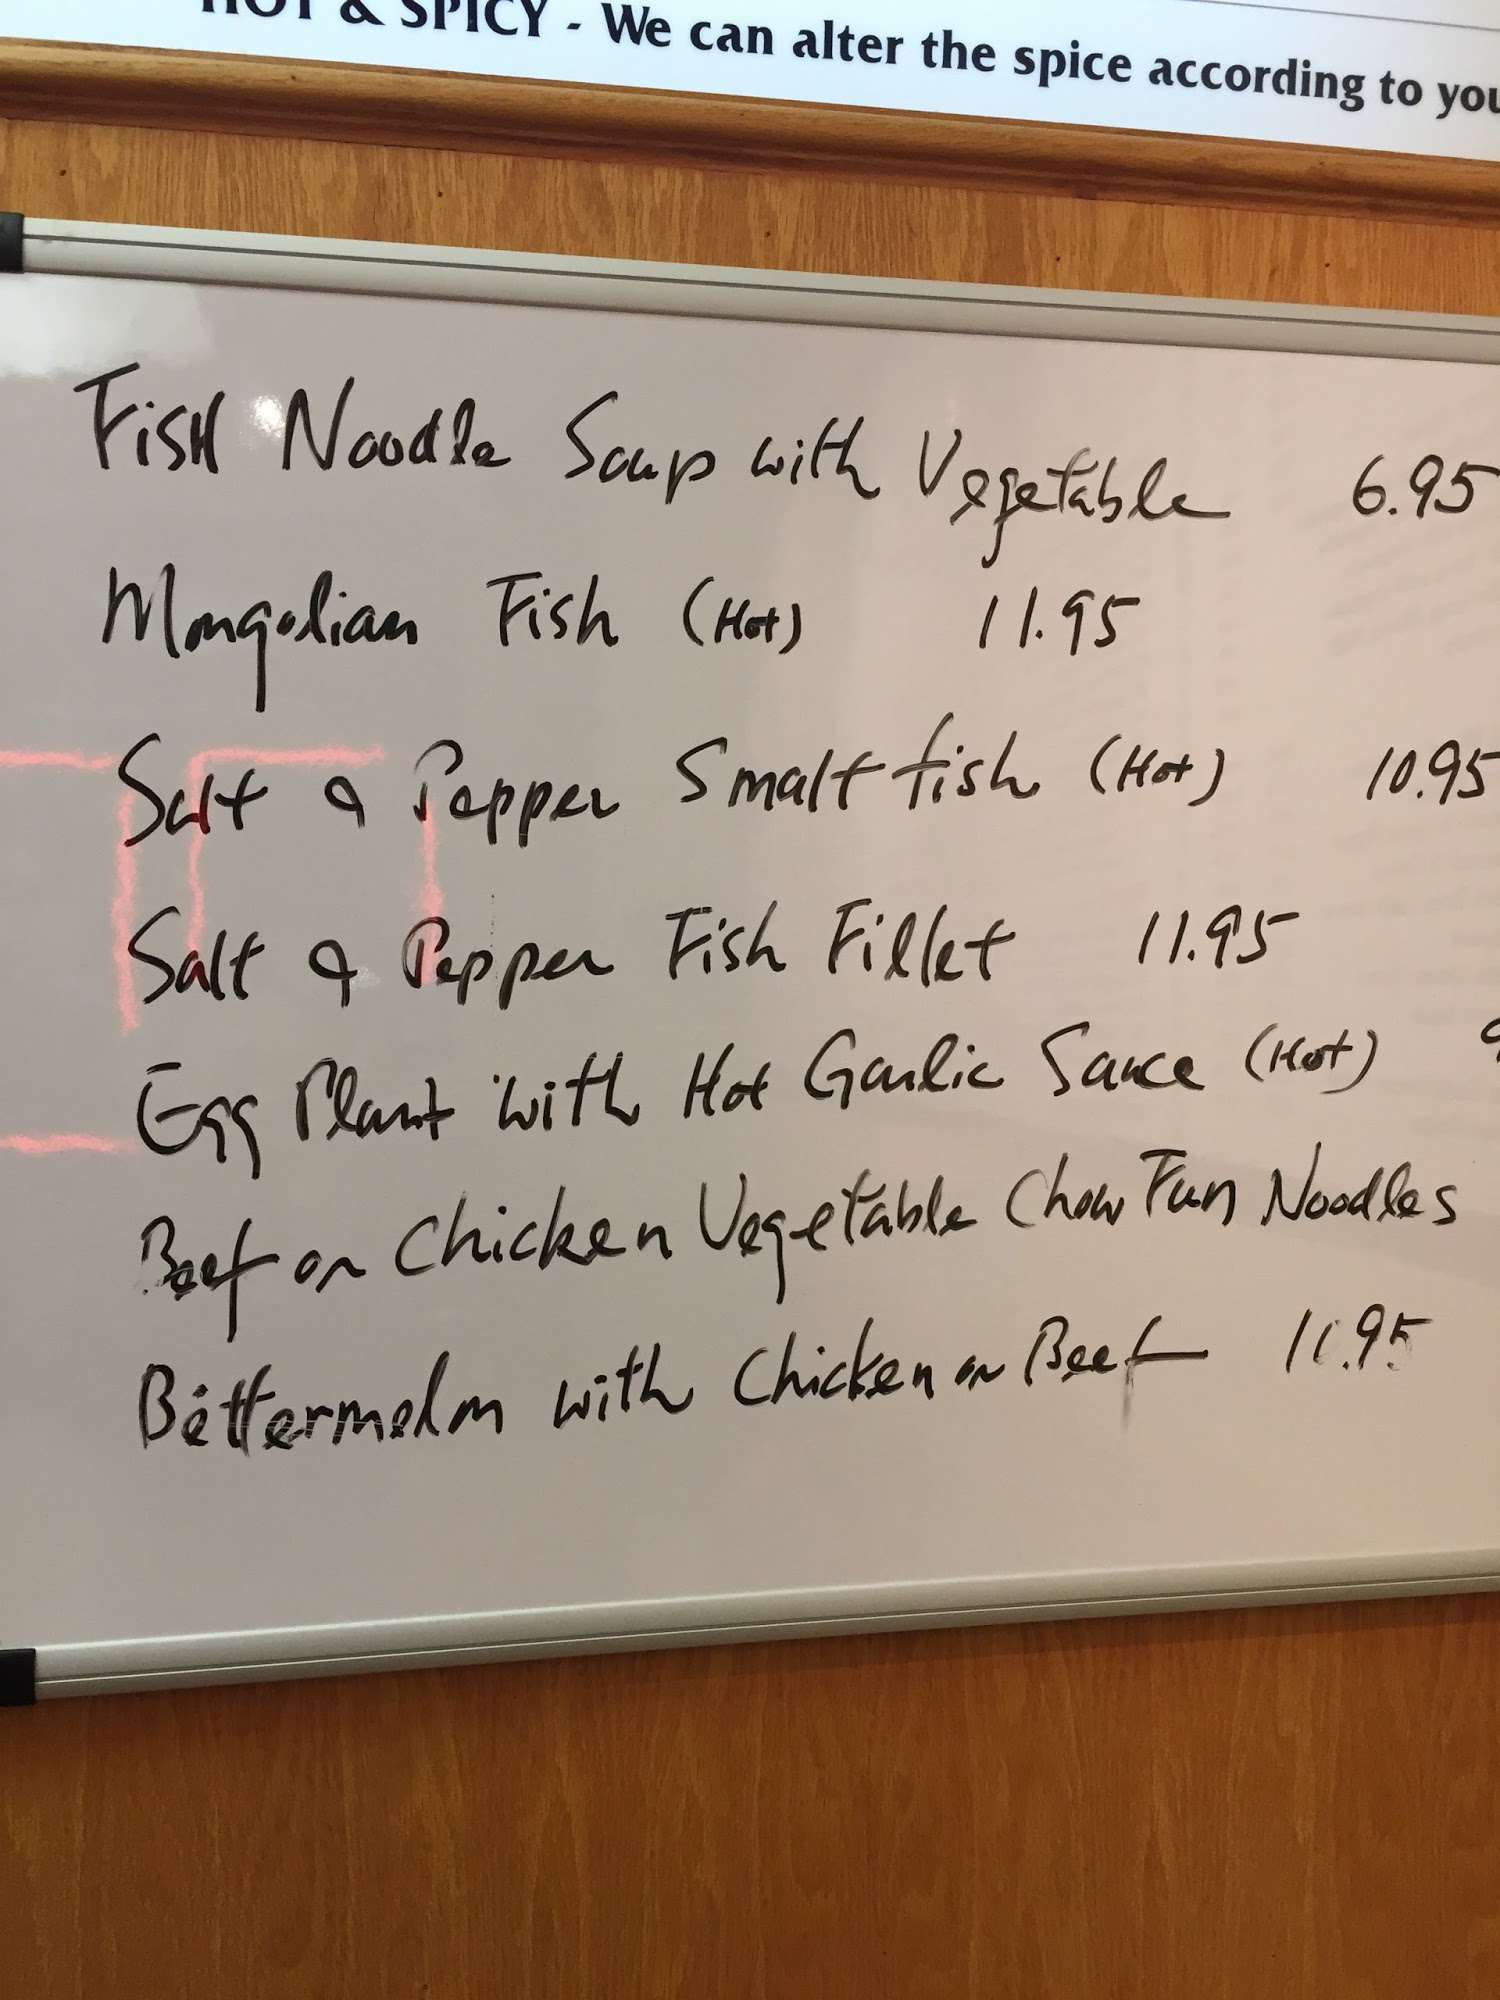 HOT & SPICY - We can alter the spice according to you
Fish Noodle Soup with Vegetable 6.95
Mongolian Fish (Hot) 11.95
Salt & Pepper Smalt fish (Hot) 10.95
Salt & Pepper Fish Fillet 11.95
Egg Plant with Hot Garlic Sauce (Hot) 9
Beef or Chicken Vegetable Chow Fun Noodles
Bittermelon with Chicken or Beef 11.95